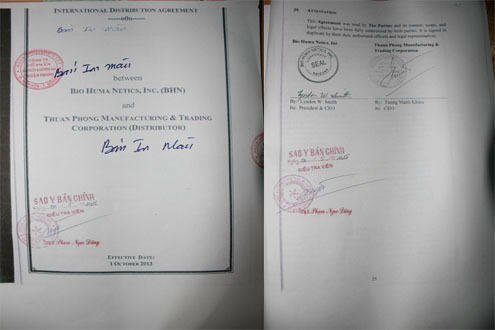 INTERNATIONAL DISTRIBUTION AGREEMENT
---o0o---
Bản In Màu
Bản In Màu
between
BIO HUMA NETICS, INC. (BHN)
and
THUAN PHONG MANUFACTURING & TRADING
CORPORATION (DISTRIBUTOR)
Bản In Màu
SAO Y BẢN CHÍNH
ĐIỀU TRA VIÊN
Phạm Ngọc Dũng
EFFECTIVE DATE:
1 OCTOBER 2013
29. ATTESTATION
This Agreement was read by The Parties and its content, scope, and
legal effects have been fully understood by both parties. It is signed in
duplicate by their duly authorized officers and legal representation.
Bio Huma Netics, Inc
Thuan Phong Manufacturing &
Trading Corporation
SEAL
By: Lyndon W. Smith
Its: President & CEO
By: Truong Manh Khien
Its: CEO
SAO Y BẢN CHÍNH
ĐIỀU TRA VIÊN
Phạm Ngọc Dũng
25